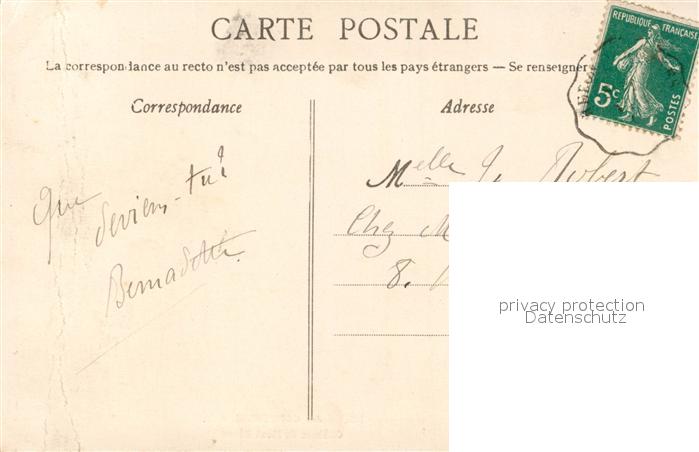 CARTE POSTALE
La correspondance au recto n'est pas acceptée par tous les pays étrangers — Se renseigner
REPUBLIQUE FRANÇAISE
5c
POSTES
Correspondance
Adresse
Que
deviens-tu?
Bernadette.
Melle Robert
Chez M
8.
privacy protection
Datenschutz